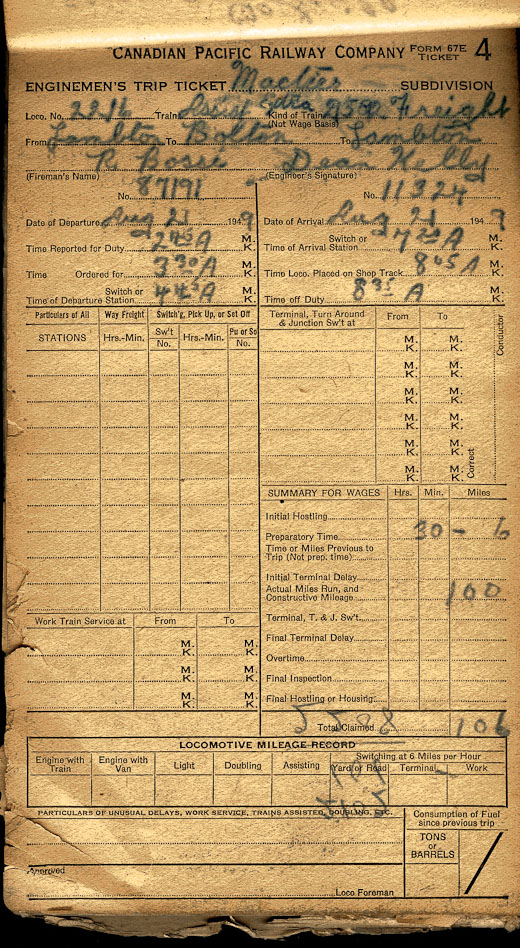 CANADIAN PACIFIC RAILWAY COMPANY FORM 67E TICKET 4
ENGINEMEN'S TRIP TICKET Mactier SUBDIVISION
Loco. No. 2211 Train Extra Kind of Train (Not Wage Basis) Freight
From Lambton To Bolton To Lambton
R Bossie Dean Kelly
(Fireman's Name) (Engineer's Signature)
No. 87191 No. 11324
Date of Departure Aug 21 1949 Date of Arrival Aug 21 1949
Time Reported for Duty 2 45 A M. K. Switch or Time of Arrival Station A M. K.
Time Ordered for 3 30 A M. K. Time Loco. Placed on Shop Track 8 05 A M. K.
Switch or Time of Departure Station 4 45 A M. K. Time off Duty 8 35 A M. K.
Particulars of All Way Freight Switch'g, Pick Up, or Set Off
STATIONS Hrs.-Min. Sw't No. Hrs.-Min. Pu or So No.
Terminal, Turn Around & Junction Sw't at From To
M. K. M. K.
M. K. M. K.
M. K. M. K.
M. K. M. K.
M. K. M. K.
M. K. M. K.
Conductor
Correct
SUMMARY FOR WAGES Hrs. Min. Miles
Initial Hostling
Preparatory Time 30 - 6
Time or Miles Previous to Trip (Not prep. time)
Initial Terminal Delay
Actual Miles Run, and Constructive Mileage 100
Terminal, T. & J. Sw't
Final Terminal Delay
Overtime
Final Inspection
Final Hostling or Housing
Total Claimed 106
Work Train Service at From To
M. K. M. K.
M. K. M. K.
M. K. M. K.
LOCOMOTIVE MILEAGE RECORD
Engine with Train Engine with Van Light Doubling Assisting Switching at 6 Miles per Hour
Yard or Road Terminal Work
PARTICULARS OF UNUSUAL DELAYS, WORK SERVICE, TRAINS ASSISTED, DOUBLING, ETC.
Consumption of Fuel since previous trip
TONS or BARRELS
Approved
Loco Foreman